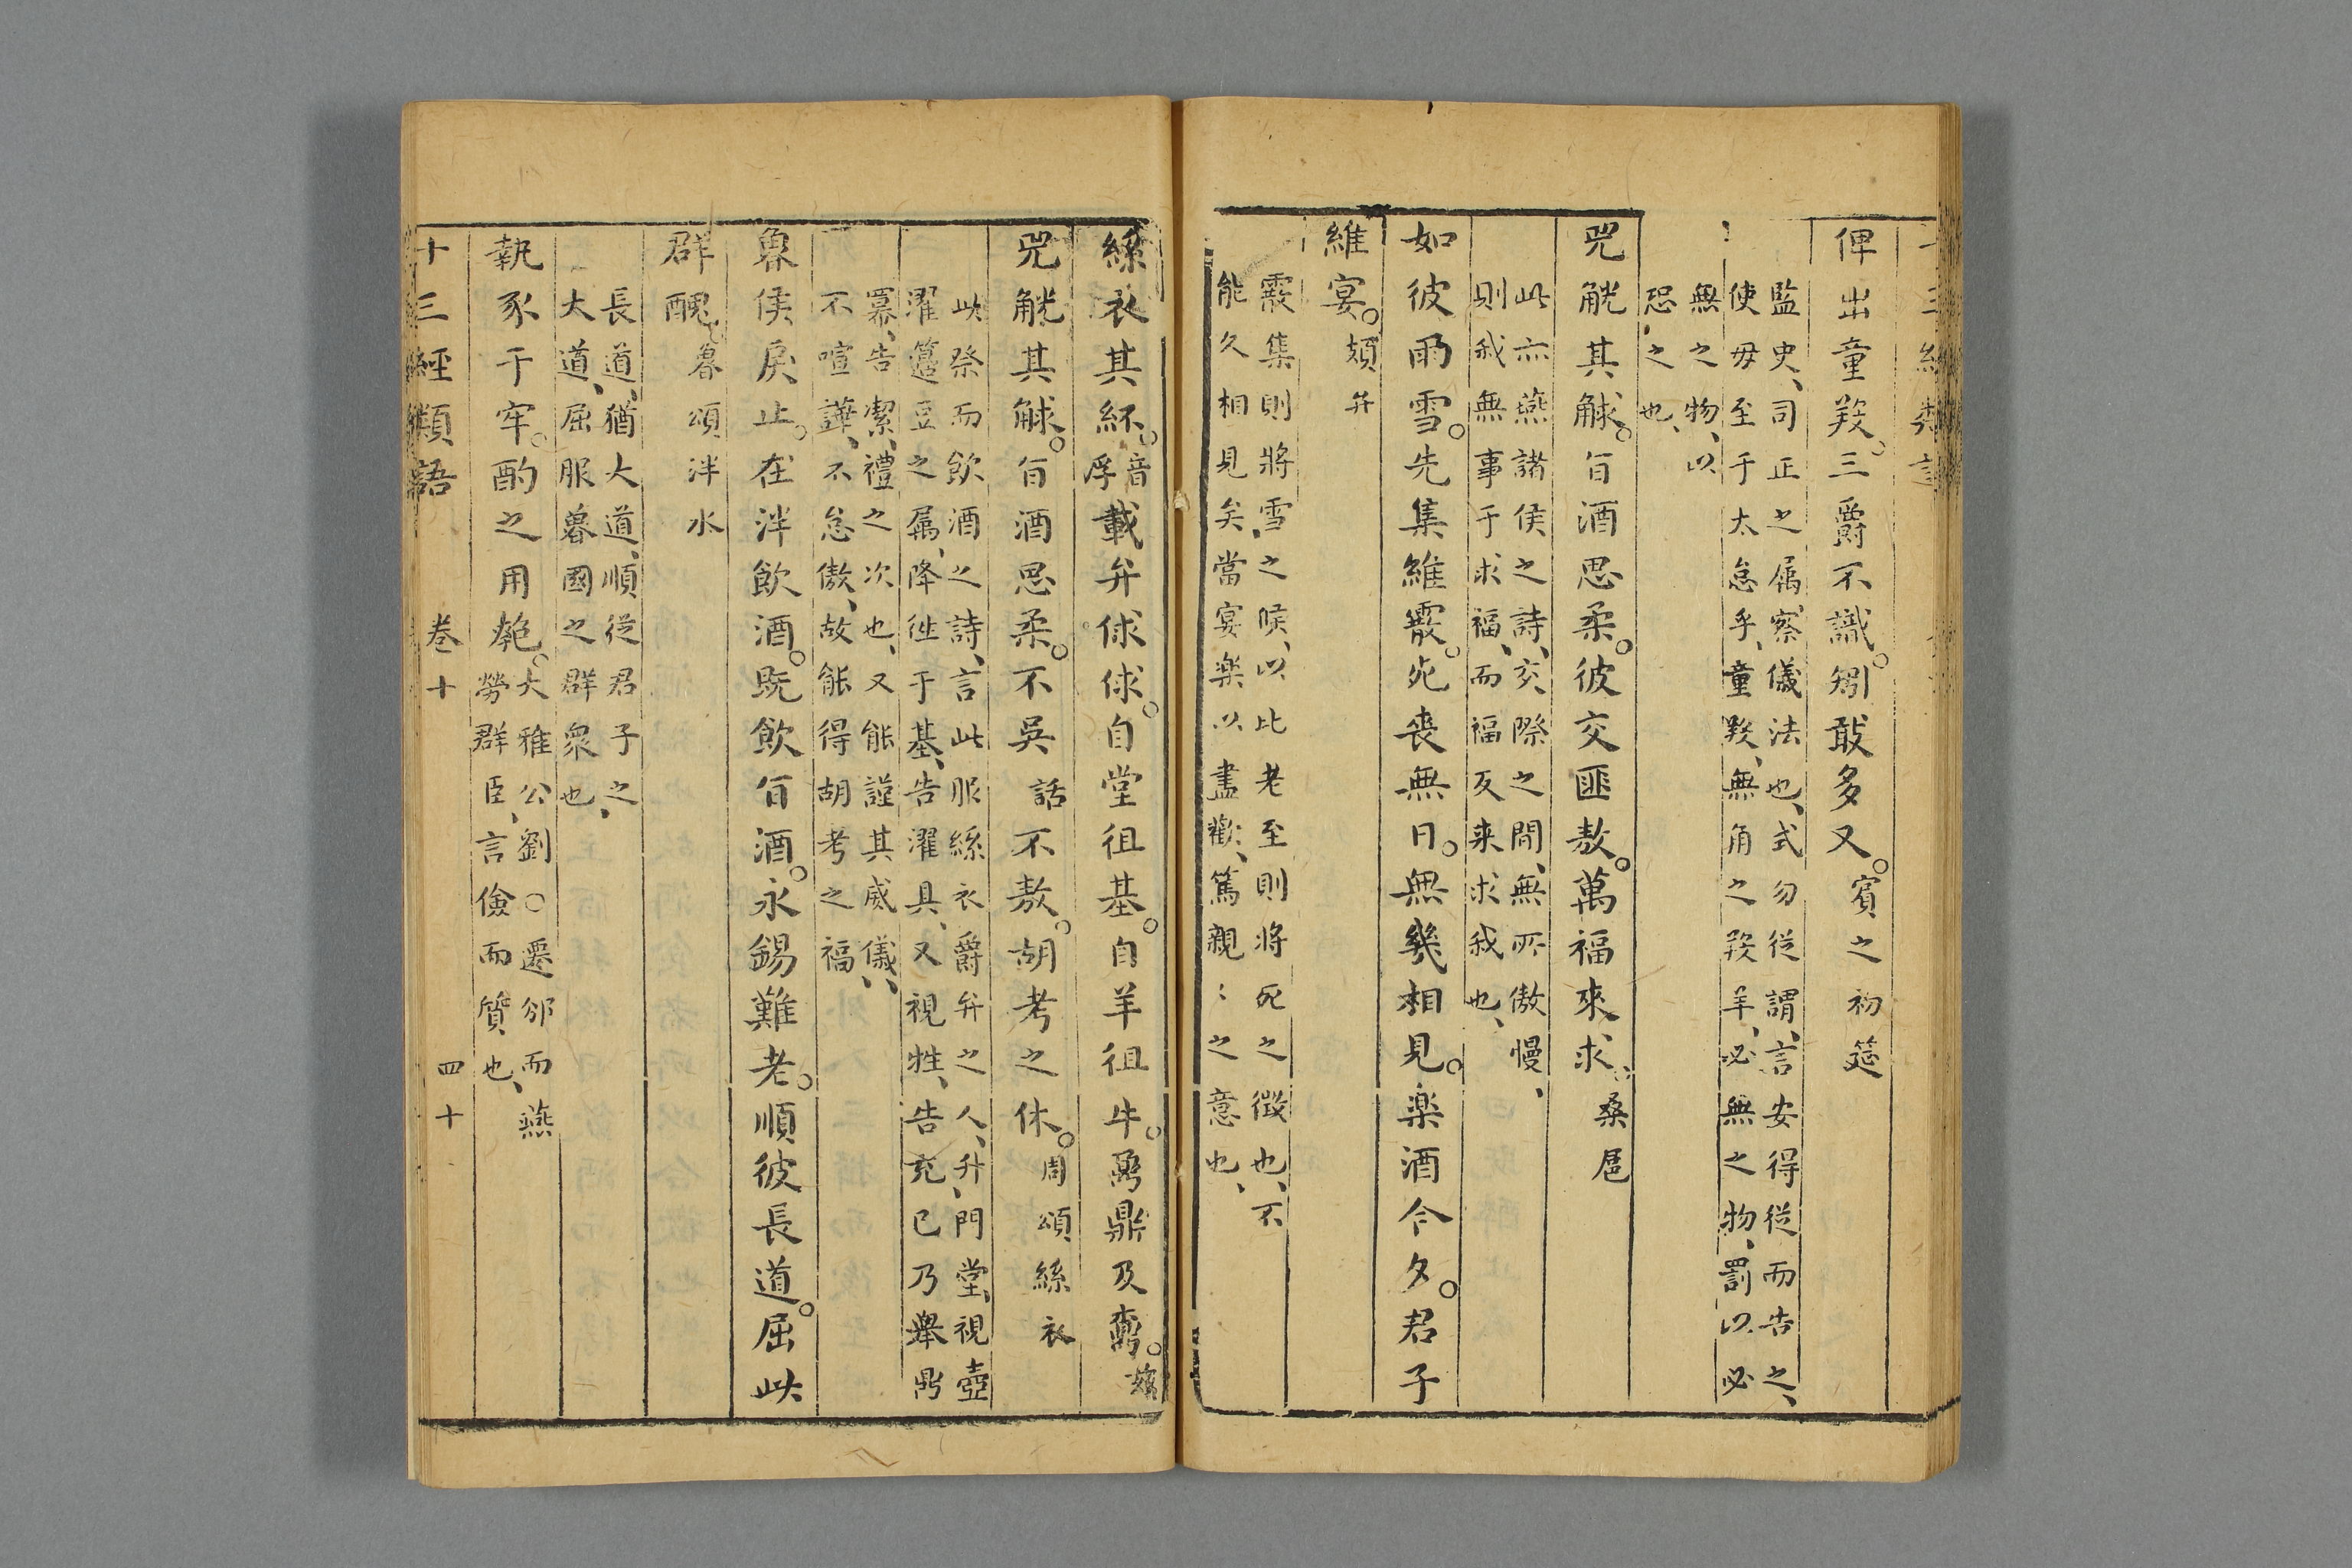 俾出童羖。三爵不識。矧敢多又。賓之初筵
監史、司正之属、察儀法也、式勿從謂、言安得從而告之、
使毋至于太怠乎、童羖、無角之羖羊、必無之物、罰以必
無之物、以
恐之也、
兕觥其觩。旨酒思柔。彼交匪敖。萬福來求。桑扈
此亦燕諸侯之詩、交際之間、無所傲慢、
則我無事于求福、而福反来求我也、
如彼雨雪。先集維霰。死丧無日。無幾相見。楽酒今夕。君子
維宴。頍弁
霰集則將雪之候、以比老至則將死之徴也、不
能久相見矣、當宴楽以盡歡、篤親〻之意也、
絲衣其紑。音浮載弁俅俅。自堂徂基。自羊徂牛。鼐鼎及鼒。
兕觥其觩。旨酒思柔。不吳話不敖。胡考之休。周頌絲衣
此祭而飲酒之詩、言此服絲衣爵弁之人、升門堂、視壺
濯籩豆之属、降徃于基、告濯具、又視牲、告充已乃舉鼎
冪、告潔、禮之次也、又能謹其威儀、
不喧譁、不怠傲、故能得胡考之福
魯侯戾止。在泮飲酒。既飲旨酒。永錫難老。順彼長道。屈此
群醜。魯頌泮水
長道、猶大道、順從君子之、
大道、屈服魯國之群衆也、
執豕于牢。酌之用匏。大雅公劉○遷邠而燕
勞群臣、言儉而質也、
十三經類語 巻十 四十